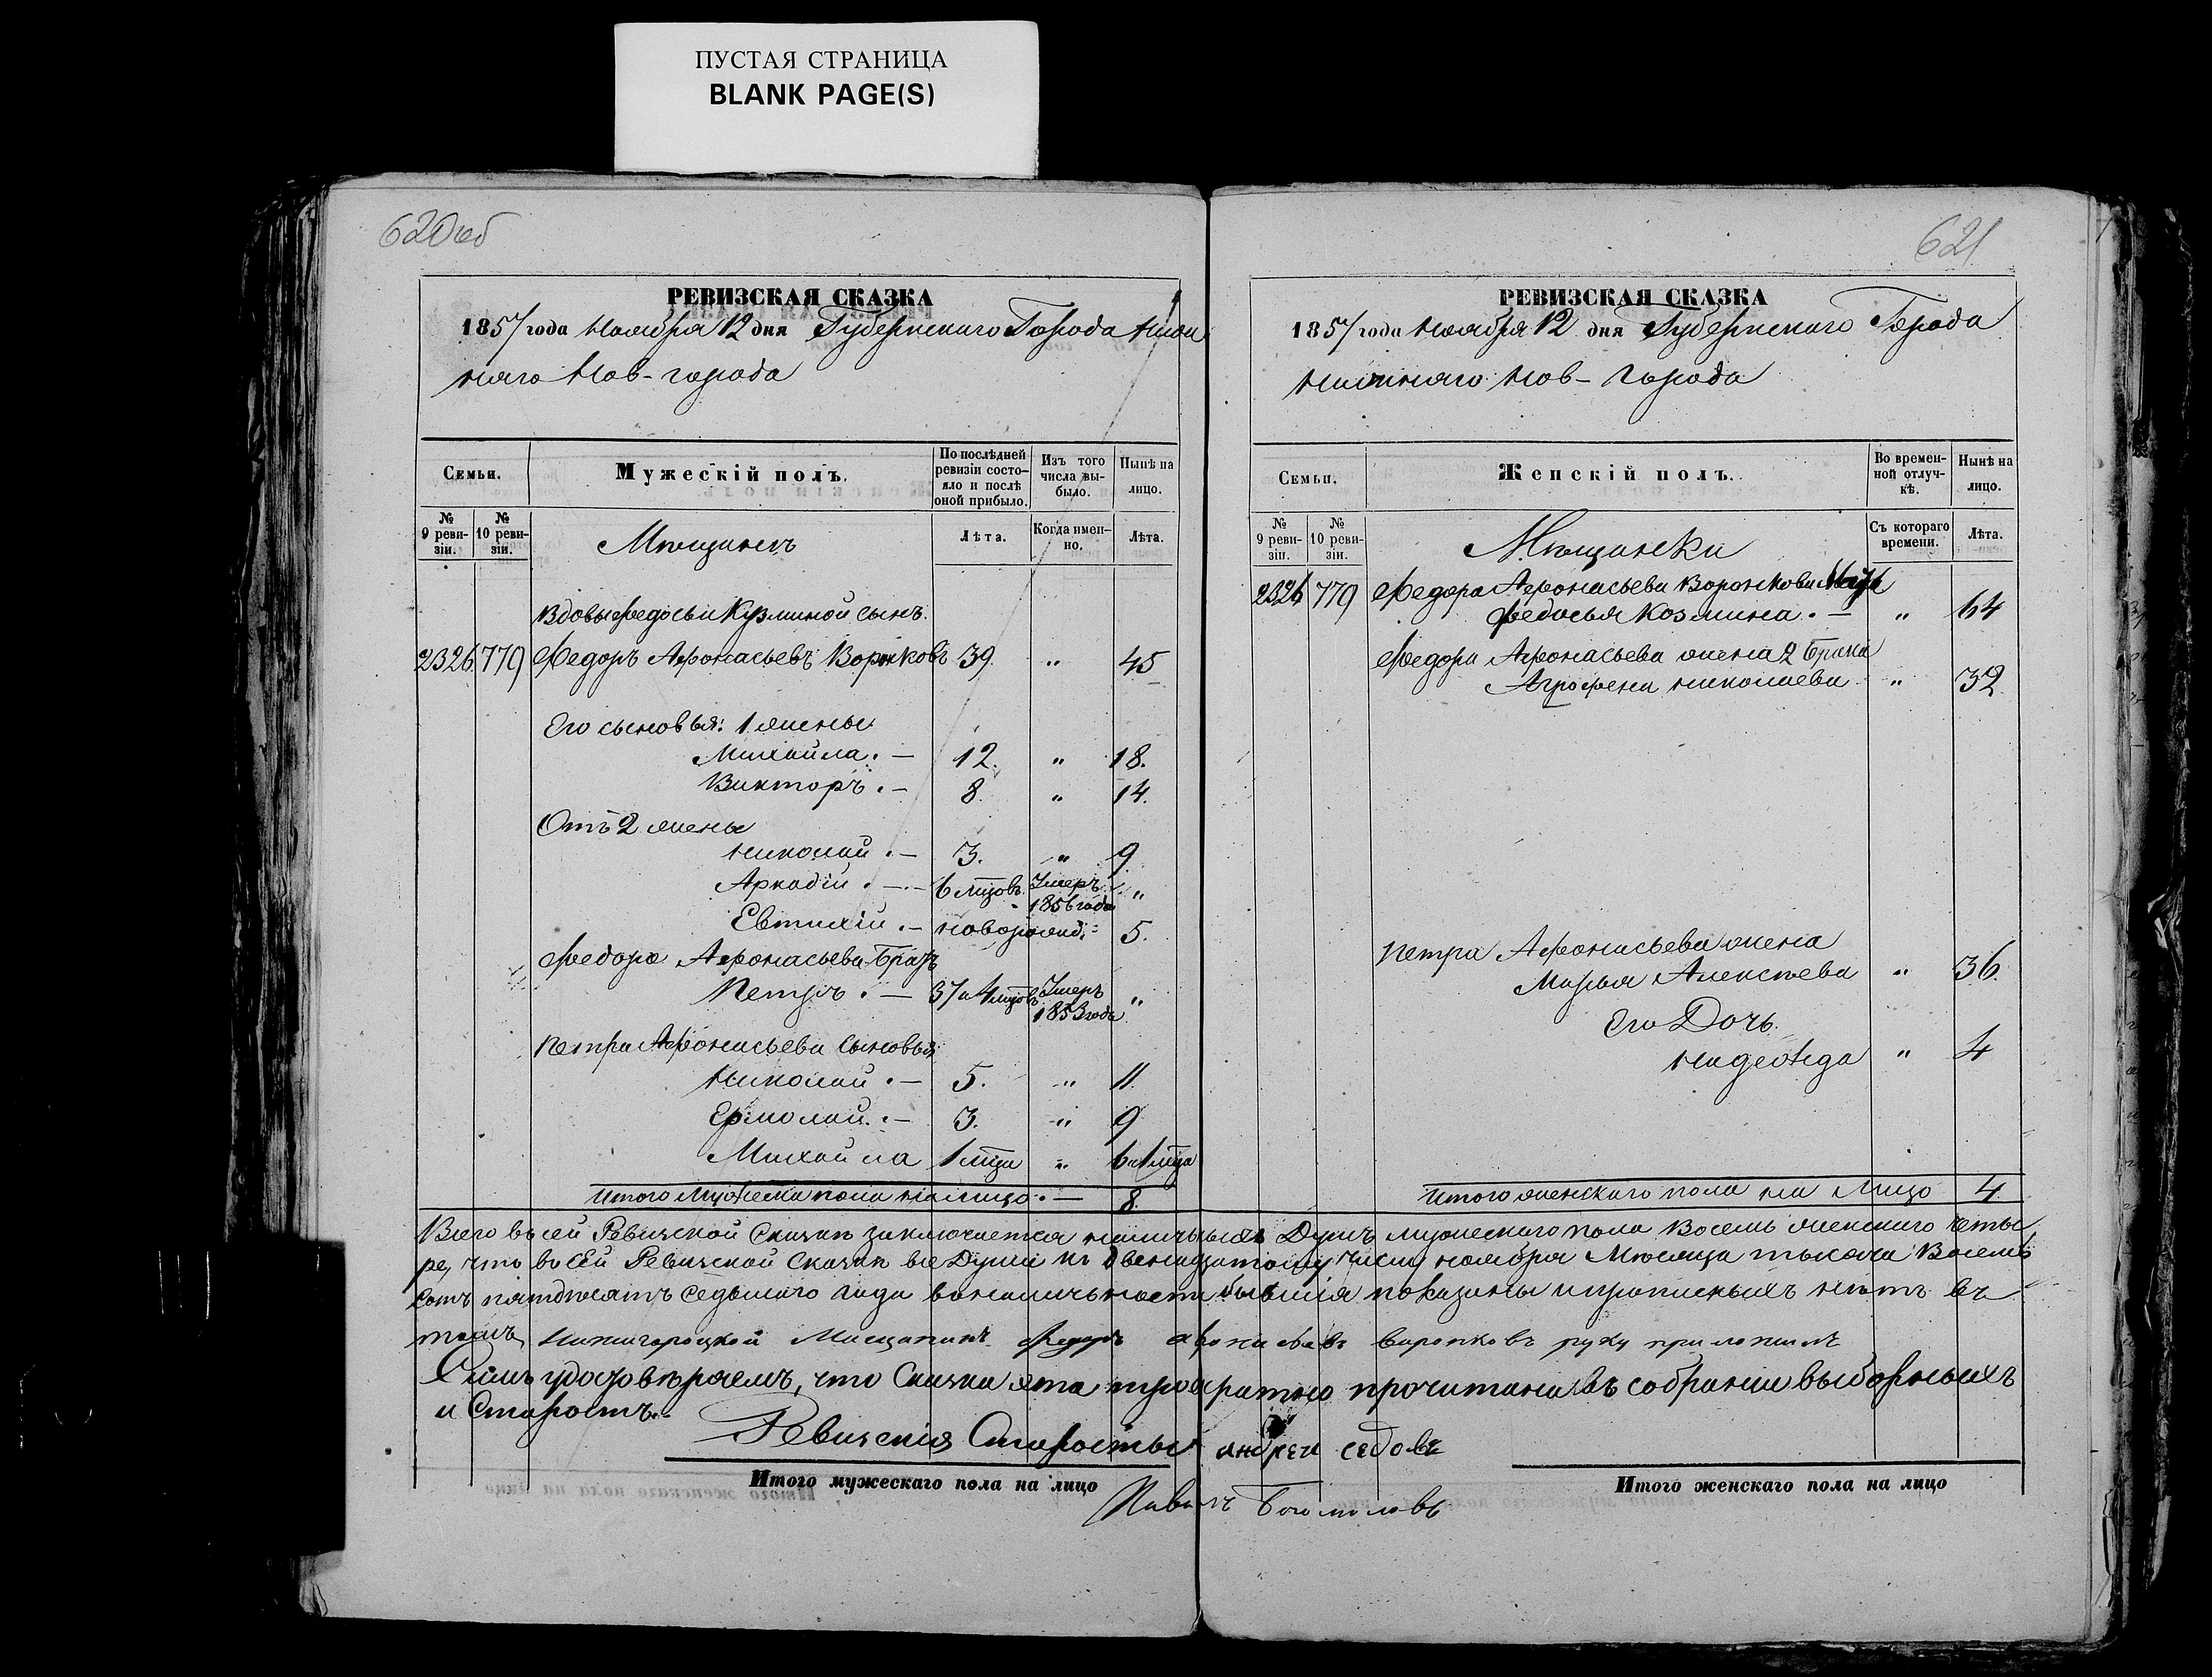 ПУСТАЯ СТРАНИЦА
BLANK PAGE(S)
620об
РЕВИЗСКАЯ СКАЗКА
1857 года Ноября 12 дня Губернскаго Города Ниж
няго Нов-города
Семьи.
Мужескій полъ.
По послѣдней ревизіи состояло и послѣ оной прибыло.
Изъ того числа выбыло.
Нынѣ на лицо.
№ 9 ревизіи.
№ 10 ревизіи.
Мѣщанъ
Лѣта.
Когда именно.
Лѣта.
Вдовы Федосьи Кузминой сынъ.
2326 779 Федоръ Афонасьевъ Воронковъ 39 " 45
Его сыновья: 1 жены
Михайла. — 12. " 18.
Викторъ. — 8. " 14.
Отъ 2 жены
Николай. — 3. " 9
Аркадій. — 6 мцовъ Умеръ 1856 года "
Евтихій. — новорожд: 5.
Федора Афонасьева Братъ
Петръ. — 37 и 4 мцовъ Умеръ 1853 года "
Петра Афонасьева сыновья
Николай. — 5. " 11.
Ермолай. — 3. " 9
Михайла 1 мца " 6 и 1 мца
Итого Мужеска пола на лицо. — 8.
621
РЕВИЗСКАЯ СКАЗКА
1857 года Ноября 12 дня Губернскаго Города
Нижняго Нов-Города
Семьи.
Женскій полъ.
Во временной отлучкѣ.
Нынѣ на лицо.
№ 9 ревизіи.
№ 10 ревизіи.
Мѣщанки
Съ котораго времени.
Лѣта.
2326 779 Федора Афонасьева Воронкова Мать
Федосья Козмина. — " 64
Федора Афонасьева жена 2 брака
Агрофена Николаева " 32
Петра Афонасьева жена
Марья Алексѣева " 36.
Его Дочь.
Надежда " 4
Итого женскаго пола на Лицо 4
Всего въ сей Ревизской Сказкѣ заключается наличныхъ Душъ мужескаго пола Восемь женскаго четы
ре, что въ сей Ревизской Сказкѣ все Души къ двенадцатому числу ноября Мѣсяца тысяча Восемь
сотъ пятдѣсятъ седьмаго года въ наличьности бывшія показаны и прописныхъ нѣтъ въ
томъ Нижигороцкой Мищанинъ Федоръ афонасьевъ варонковъ руку приложилъ
Симъ удостовѣряемъ, что Сказка эта троекратно прочитана въ собраніи выборныхъ
и Старостъ.
Ревизскія Старосты андреи седовъ
Итого мужескаго пола на лицо
Павелъ Богомоловъ
Итого женскаго пола на лицо